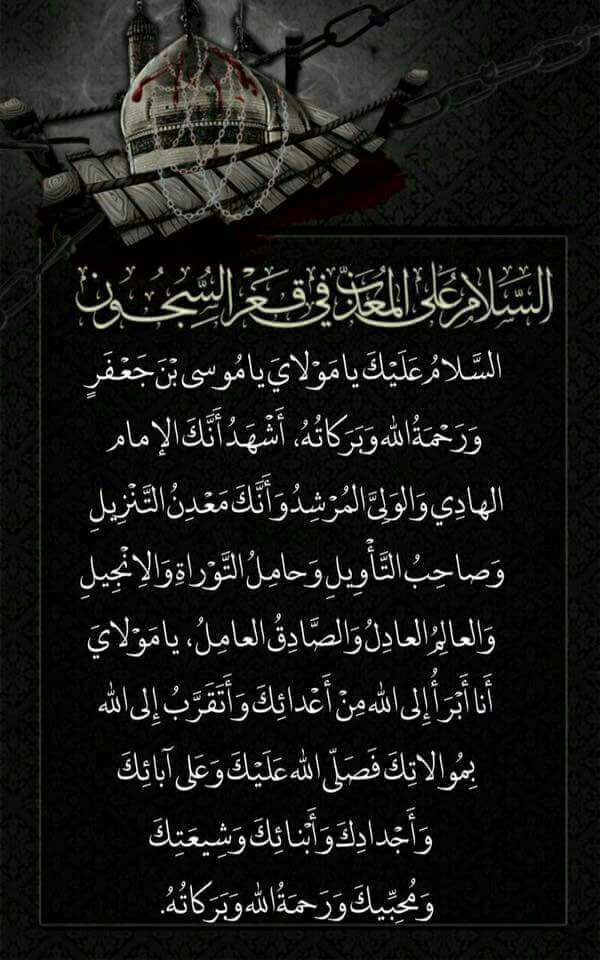 السَّلَامُ عَلَى المُعَذَّبِ فِي قَعْرِ السُّجُونِ
السَّلامُ عَلَيْكَ يا مَوْلايَ يا مُوسى بْنَ جَعْفَرٍ
وَرَحْمَةُ الله وَبَرَكاتُهُ، أَشْهَدُ أَنَّكَ الإمام
الهادِي وَالوَلِيُّ المُرْشِدُ وَأَنَّكَ مَعْدِنُ التَّنْزِيلِ
وَصاحِبُ التَّأْوِيلِ وَحامِلُ التَّوْراةِ وَالاِنْجِيلِ
وَالعالِمُ العادِلُ وَالصَّادِقُ العامِلُ، يا مَوْلايَ
أَنا أَبْرَأُ إِلى الله مِنْ أَعْدائِكَ وَأَتَقَرَّبُ إِلى الله
بِمُوالاتِكَ فَصَلّى الله عَلَيْكَ وَعَلى آبائِكَ
وَأَجْدادِكَ وَأَبْنائِكَ وَشِيعَتِكَ
وَمُحِبِّيكَ وَرَحمَةُ الله وَبَرَكاتُهُ.